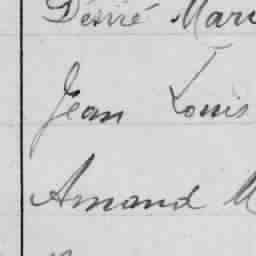 Désiré Mari
Jean Louis
Amand M